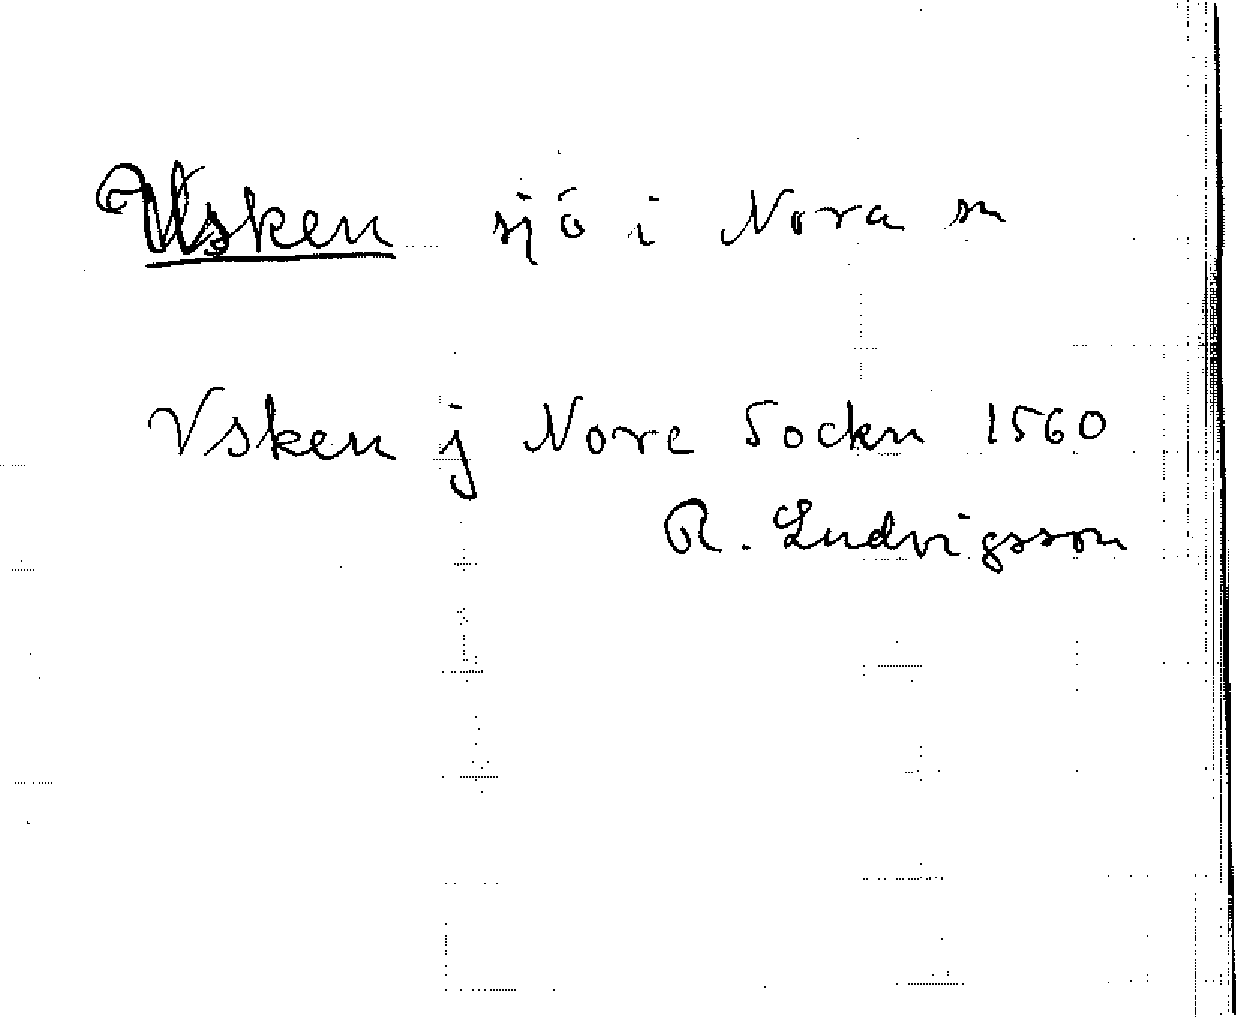 Usken sjö i Nora sn
Vsken j Nore Sockn 1560
R. Ludvigsson